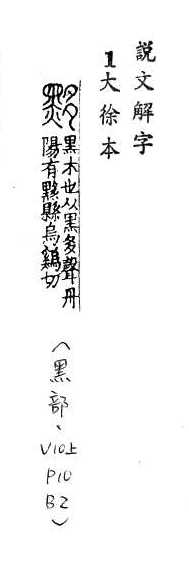 説文解字
1大徐本
黟 黑木也从黑多聲丹
陽有黟縣烏鷄切
(黑部、
V10上
P10
B2)